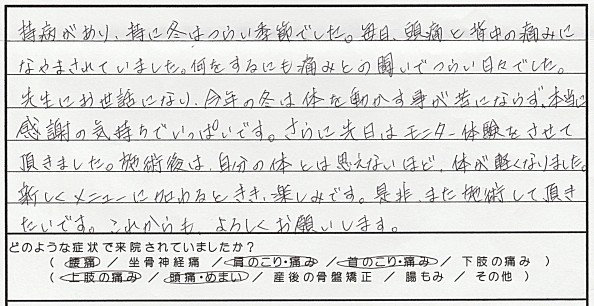 持病があり、昔に冬はつらい季節でした。毎日、頭痛と背中の痛みに
なやまされていました。何をするにも痛みとの闘いでつらい日々でした。
先生にお世話になり、今年の冬は体を動かす事が苦にならず、本当に
感謝の気持ちでいっぱいです。さらに先日はモニター体験をさせて
頂きました。施術後は、自分の体とは思えないほど、体が軽くなりました。
新しくメニューに加わるときき、楽しみです。是非、また施術して頂き
たいです。これからも、よろしくお願いします。
どのような症状で来院されていましたか？
（ 腰痛 ／ 坐骨神経痛 ／ 肩のこり・痛み ／ 首のこり・痛み ／ 下肢の痛み ）
（ 上肢の痛み ／ 頭痛・めまい ／ 産後の骨盤矯正 ／ 腸もみ ／ その他 ）